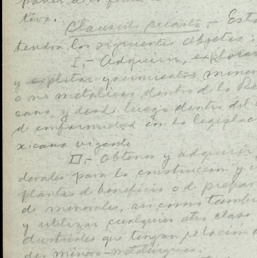 tiva.
Clausula segunda.- Esta
tendrá los siguientes objetos:
I.- Adquirir, explorar
y explotar yacimientos minera
o no metálicos dentro de la Re
cana, y desde luego dentro del
de conformidad con la legislac
xicana vigente
II.- Obtener y adquirir
para la construccion y
plantas de beneficio o de prepar
de minerales, asi como tambi
y utilizar cualquier otra clase
dustriales que tengan relacion
des minero-metalurgicas.